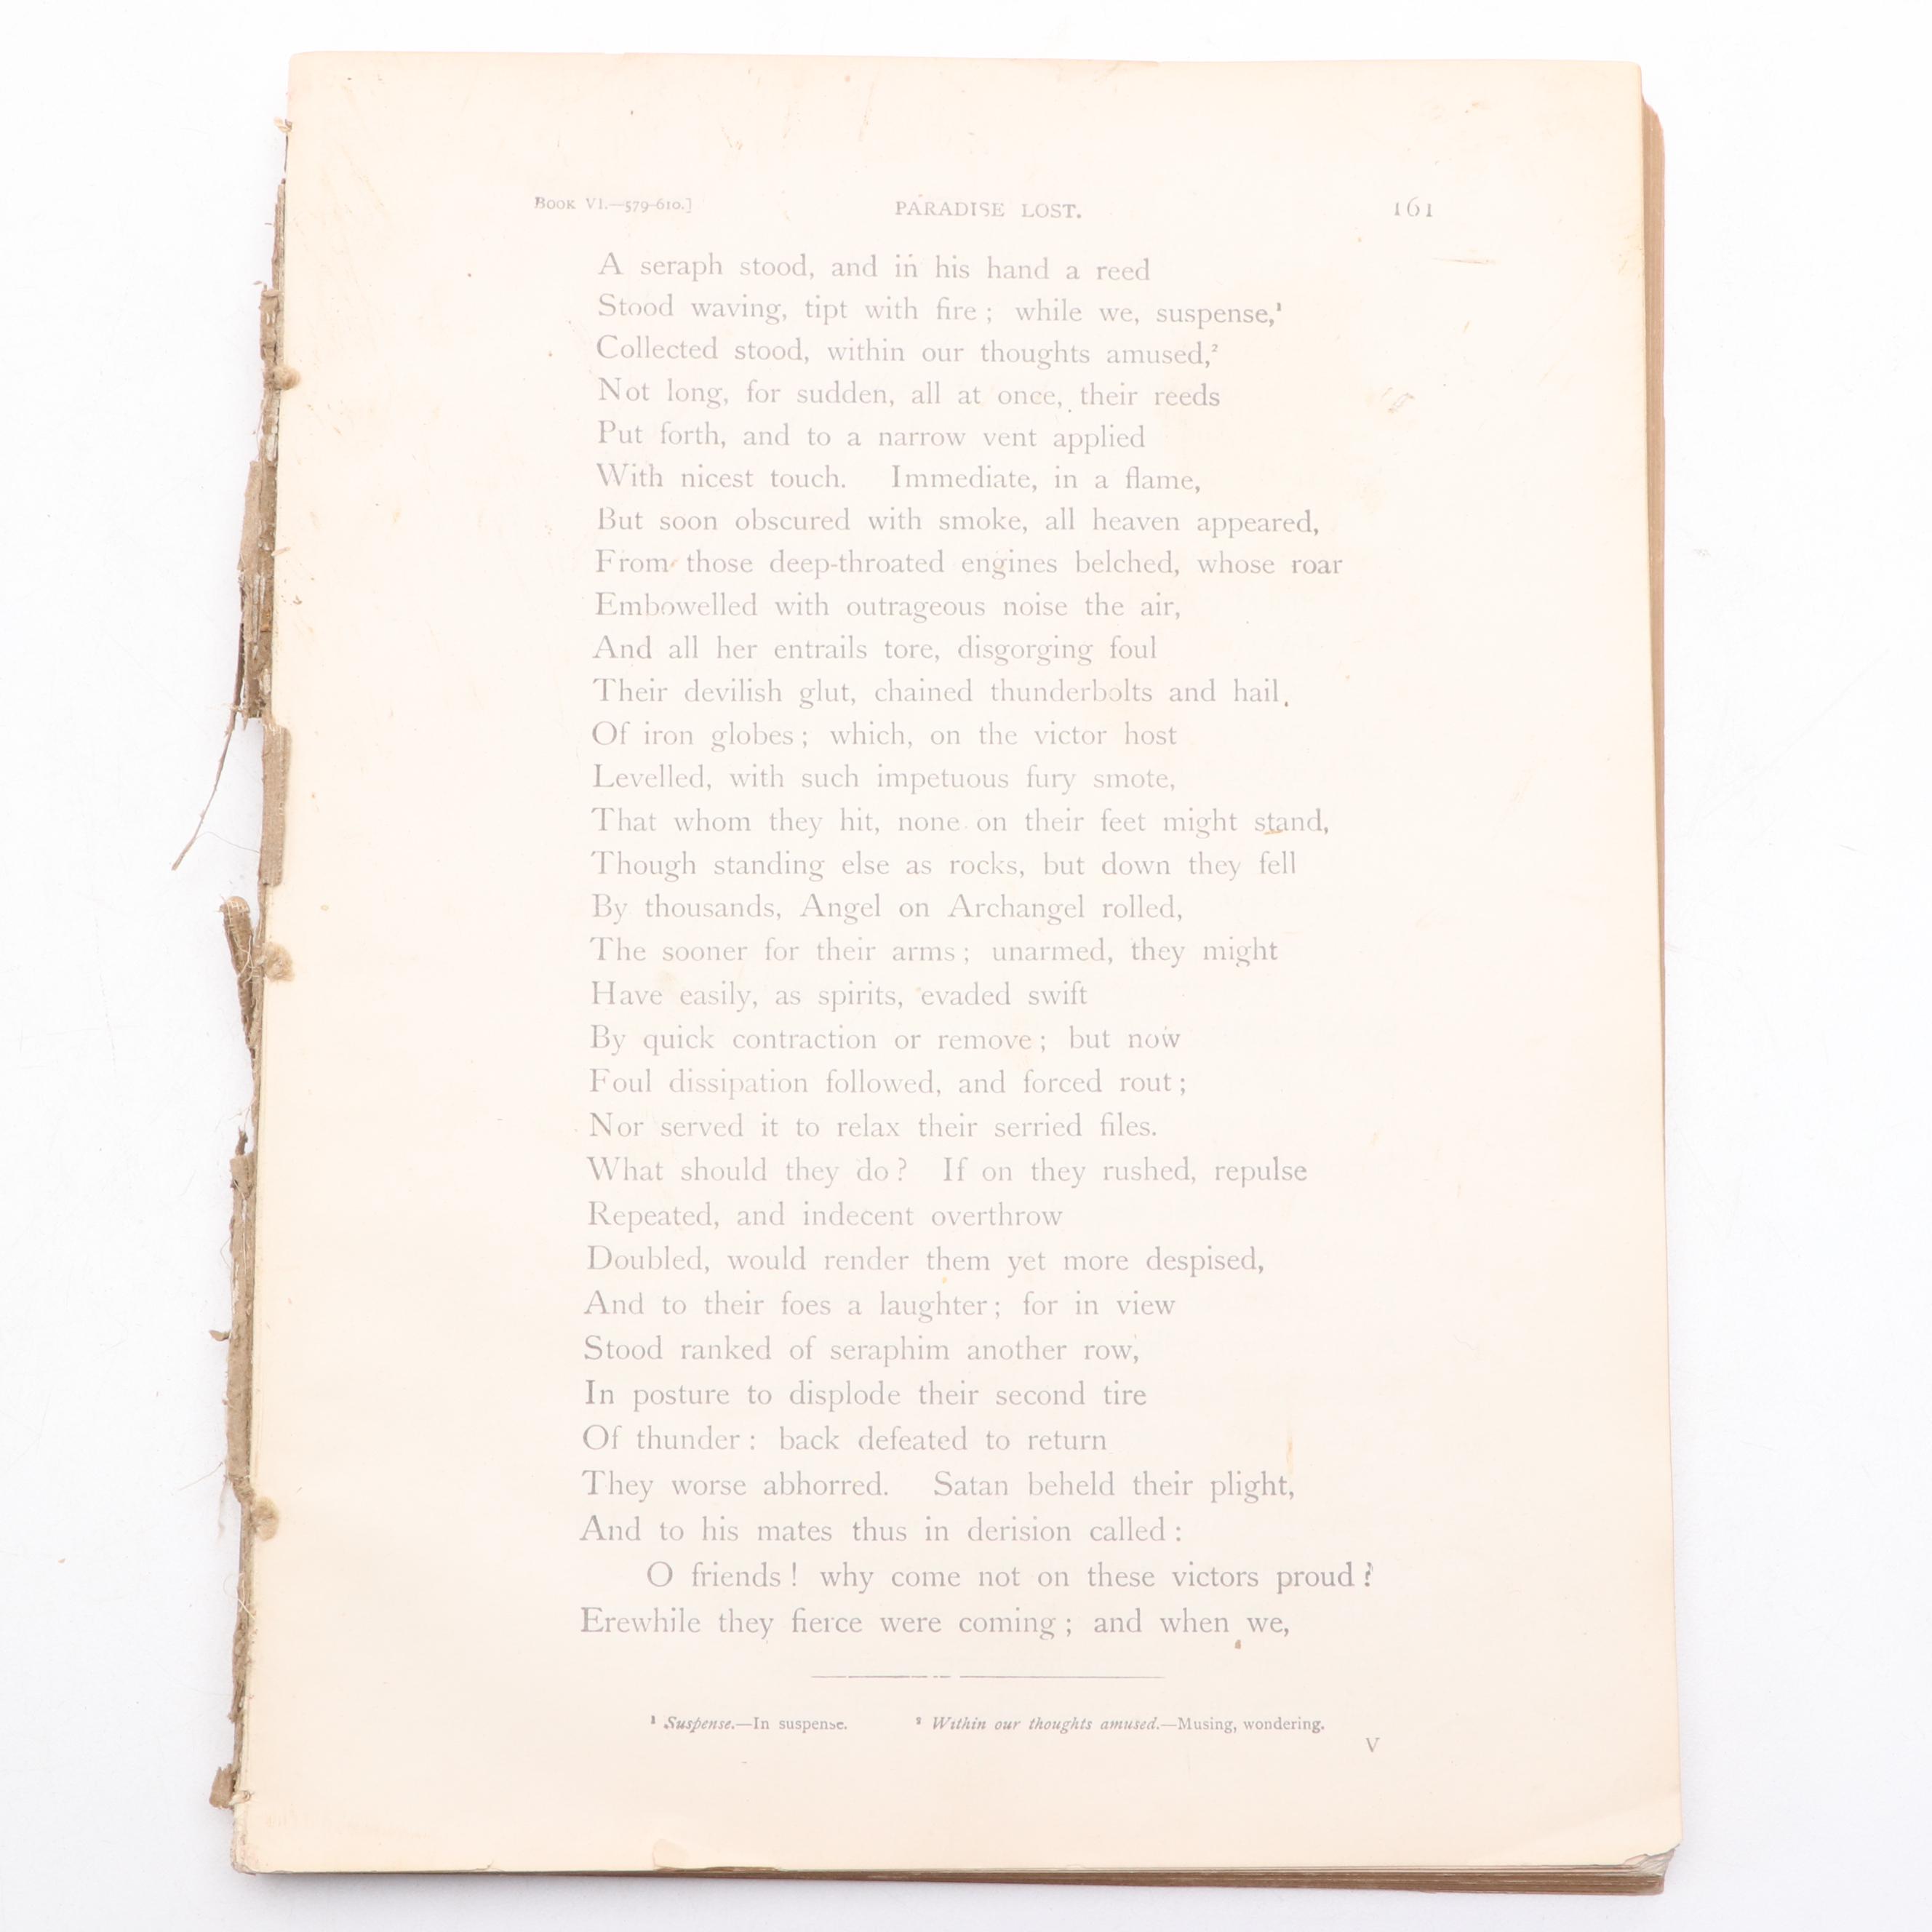 BOOK VI.—579-610.] PARADISE LOST. 161
A seraph stood, and in his hand a reed
Stood waving, tipt with fire; while we, suspense,¹
Collected stood, within our thoughts amused,²
Not long, for sudden, all at once, their reeds
Put forth, and to a narrow vent applied
With nicest touch. Immediate, in a flame,
But soon obscured with smoke, all heaven appeared,
From those deep-throated engines belched, whose roar
Embowelled with outrageous noise the air,
And all her entrails tore, disgorging foul
Their devilish glut, chained thunderbolts and hail,
Of iron globes; which, on the victor host
Levelled, with such impetuous fury smote,
That whom they hit, none on their feet might stand,
Though standing else as rocks, but down they fell
By thousands, Angel on Archangel rolled,
The sooner for their arms; unarmed, they might
Have easily, as spirits, evaded swift
By quick contraction or remove; but now
Foul dissipation followed, and forced rout;
Nor served it to relax their serried files.
What should they do? If on they rushed, repulse
Repeated, and indecent overthrow
Doubled, would render them yet more despised,
And to their foes a laughter; for in view
Stood ranked of seraphim another row,
In posture to displode their second tire
Of thunder: back defeated to return
They worse abhorred. Satan beheld their plight,
And to his mates thus in derision called:
O friends! why come not on these victors proud?
Erewhile they fierce were coming; and when we,
¹ Suspense.—In suspense. ² Within our thoughts amused.—Musing, wondering.
V